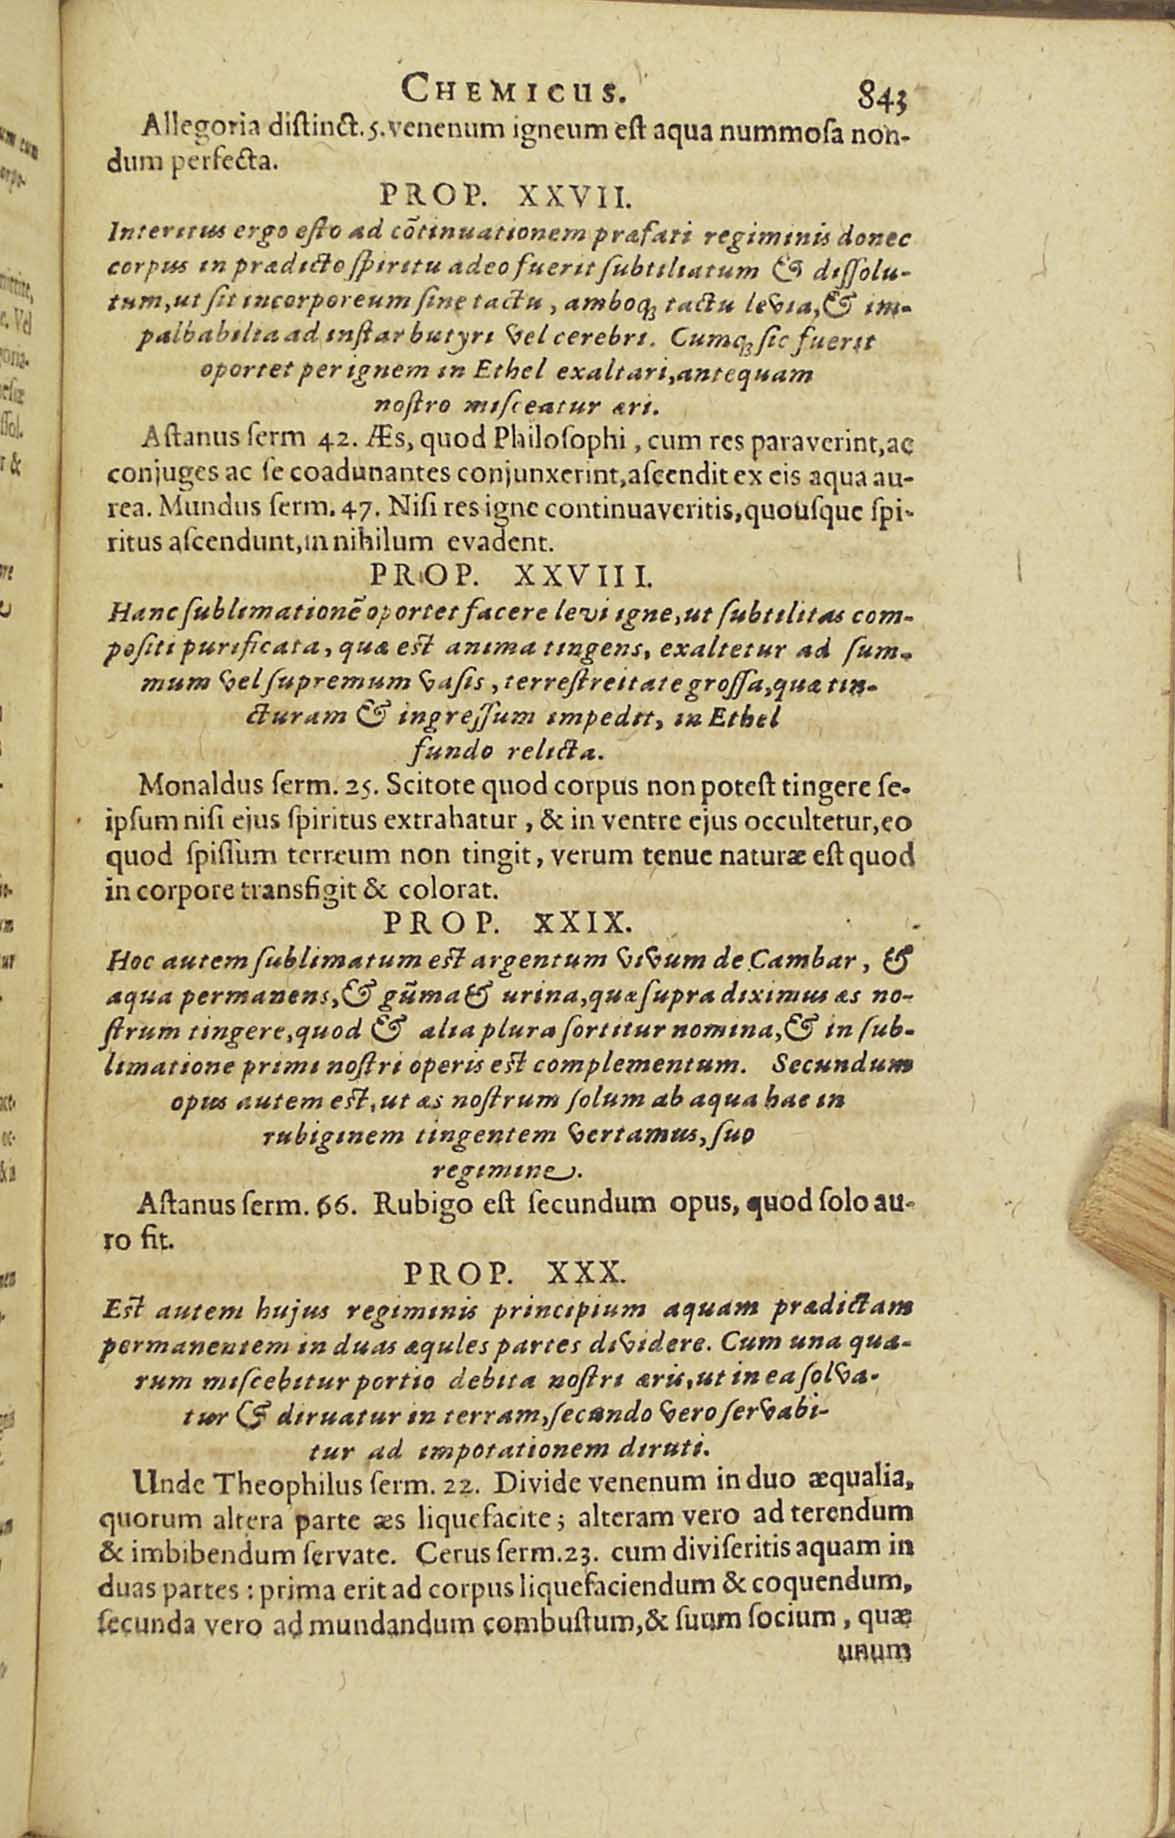 CHEMICUS. 843
Allegoria distinct. 5. venenum igneum est aqua nummosa non-
dum perfecta.
PROP. XXVII.
Interitus ergo esto ad cõtinuationem præfati regiminis donec
corpus in prædicto spiritu adeo fuerit subtiliatum & dissolu-
tum, ut sit incorporeum sine tactu, amboq; tactu levia, & im-
palbabilia ad instar butyri vel cerebri. Cumq; sic fuerit
oportet per ignem in Ethel exaltari, antequam
nostro misceatur æri.
Astanus serm 42. Æs, quod Philosophi, cum res paraverint, ac
conjuges ac se coadunantes conjunxerint, ascendit ex eis aqua au-
rea. Mundus serm. 47. Nisi res igne continuaveritis, quousque spi-
ritus ascendunt, in nihilum evadent.
PROP. XXVIII.
Hanc sublimationẽ oportet facere levi igne, ut subtilitas com-
positi purificata, quæ est anima tingens, exaltetur ad sum-
mum vel supremum vasis, terrestreitate grossa, quæ tin-
cturam & ingressum impedit, in Ethel
fundo relicta.
Monaldus serm. 25. Scitote quod corpus non potest tingere se-
ipsum nisi ejus spiritus extrahatur, & in ventre ejus occultetur, eo
quod spissum terreum non tingit, verum tenue naturæ est quod
in corpore transfigit & colorat.
PROP. XXIX.
Hoc autem sublimatum est argentum vivum de Cambar, &
aqua permanens, & gũma & urina, quæ supra diximus æs no-
strum tingere, quod & alia plura sortitur nomina, & in sub-
limatione primi nostri operis est complementum. Secundum
opus autem est, ut æs nostrum solum ab aqua hac in
rubiginem tingentem vertamus, suo
regimine.
Astanus serm. 66. Rubigo est secundum opus, quod solo au-
ro fit.
PROP. XXX.
Est autem hujus regiminis principium aquam prædictam
permanentem in duas æqules partes dividere. Cum una qua-
rum miscebitur portio debita nostri æris, ut in ea solva-
tur & diruatur in terram, secundo vero servabi-
tur ad impotationem diruti.
Unde Theophilus serm. 22. Divide venenum in duo æqualia,
quorum altera parte æs liquefacite; alteram vero ad terendum
& imbibendum servate. Cerus serm. 23. cum diviseritis aquam in
duas partes: prima erit ad corpus liquefaciendum & coquendum,
secunda vero ad mundandum combustum, & suum socium, quæ
unum